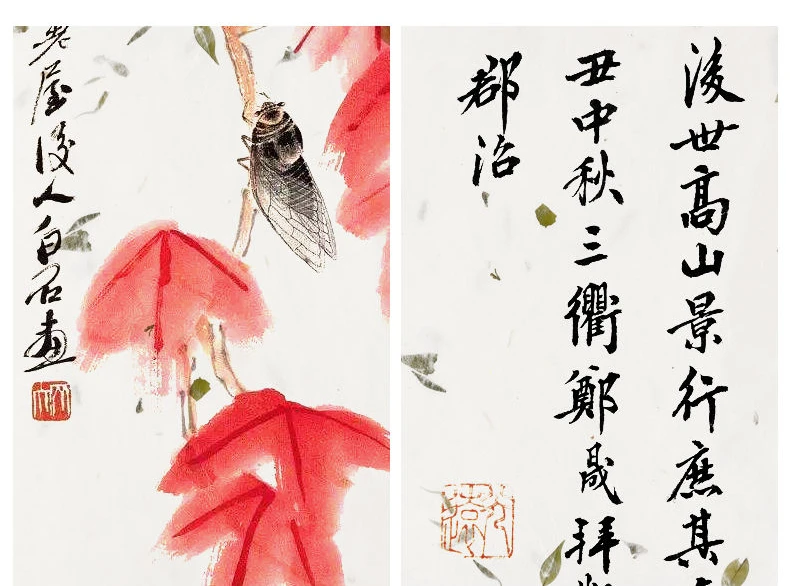 老屋後人白石画
後世高山景行庶其
丑中秋三衢鄭晟拜
郡治